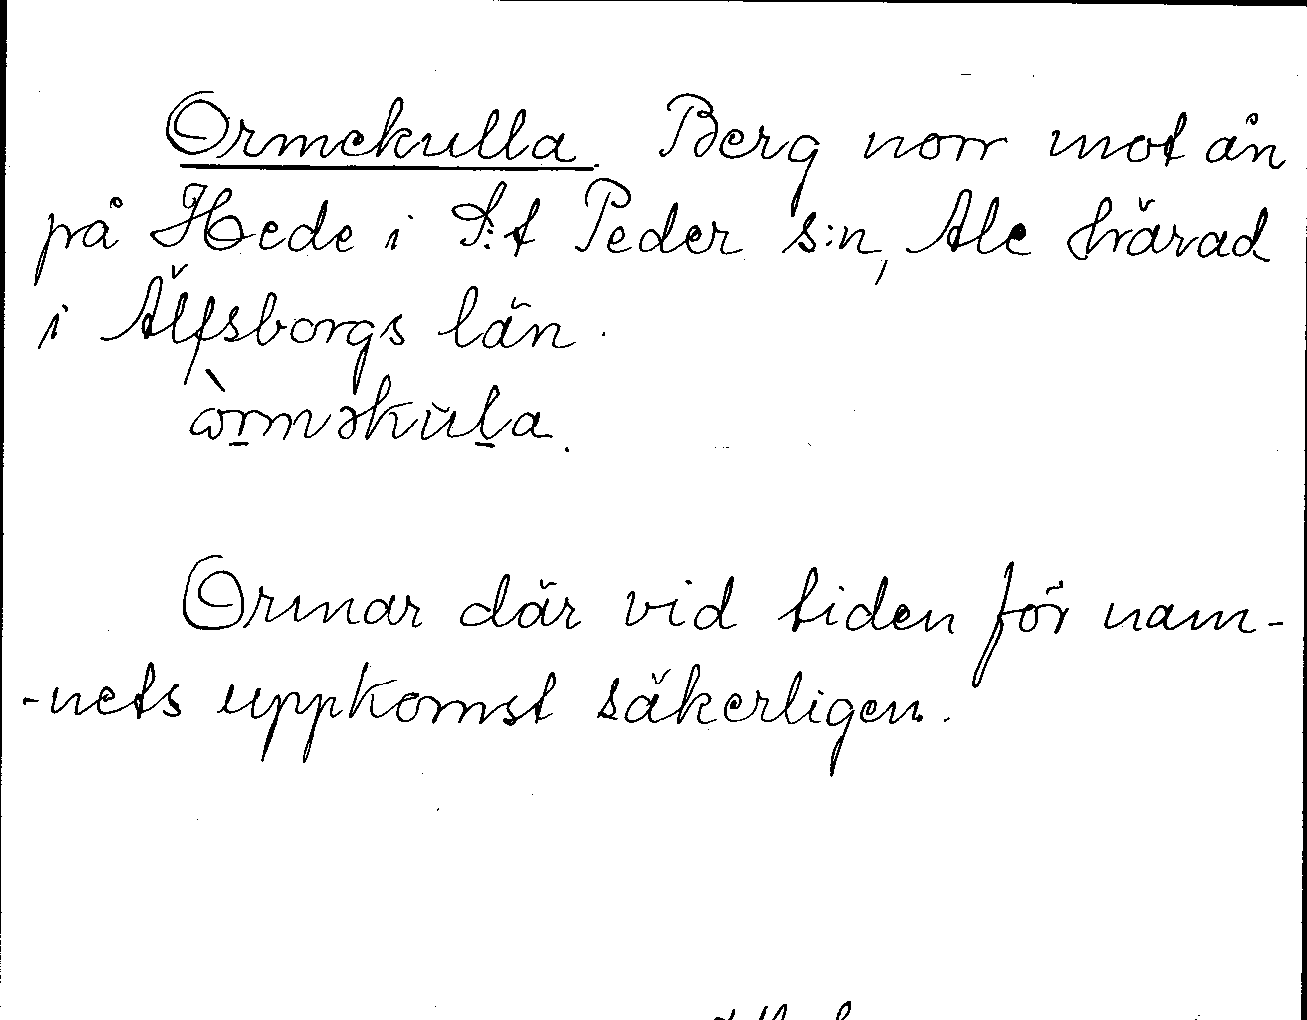 Ormekulla. Berg norr mot ån
på Hede i S:t Peder s:n, Ale härad
i Älfsborgs län.
ɷ̀rməkŭla.
Ormar där vid tiden för nam-
-nets uppkomst säkerligen.